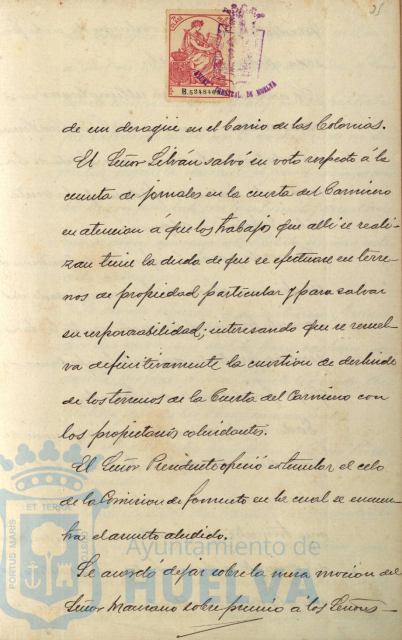 25
B.5248404
MUNICIPAL DE HUELVA
de un desagüe en el barrio de las Colonias.
El Señor Silván salvó su voto respecto á la
cuenta de jornales en la cuesta del Carnicero
en atencion á que los trabajos que alli se reali-
zan tiene la duda de que se efectuan en terre-
nos de propiedad particular y para salvar
su responsabilidad; interesando que se resuel-
va definitivamente la cuestion de deslinde
de los terrenos de la Cuesta del Carnicero con
los propietarios colindantes.
El Señor Presidente ofreció estimular el celo
de la Comision de fomento en la cual se encuen-
tra el asunto aludido.
Se acordó dejar sobre la mesa mocion del
Señor Manzano sobre premio á los Señores
PORTUS MARIS ET TERRAE
Ayuntamiento de
HUELVA